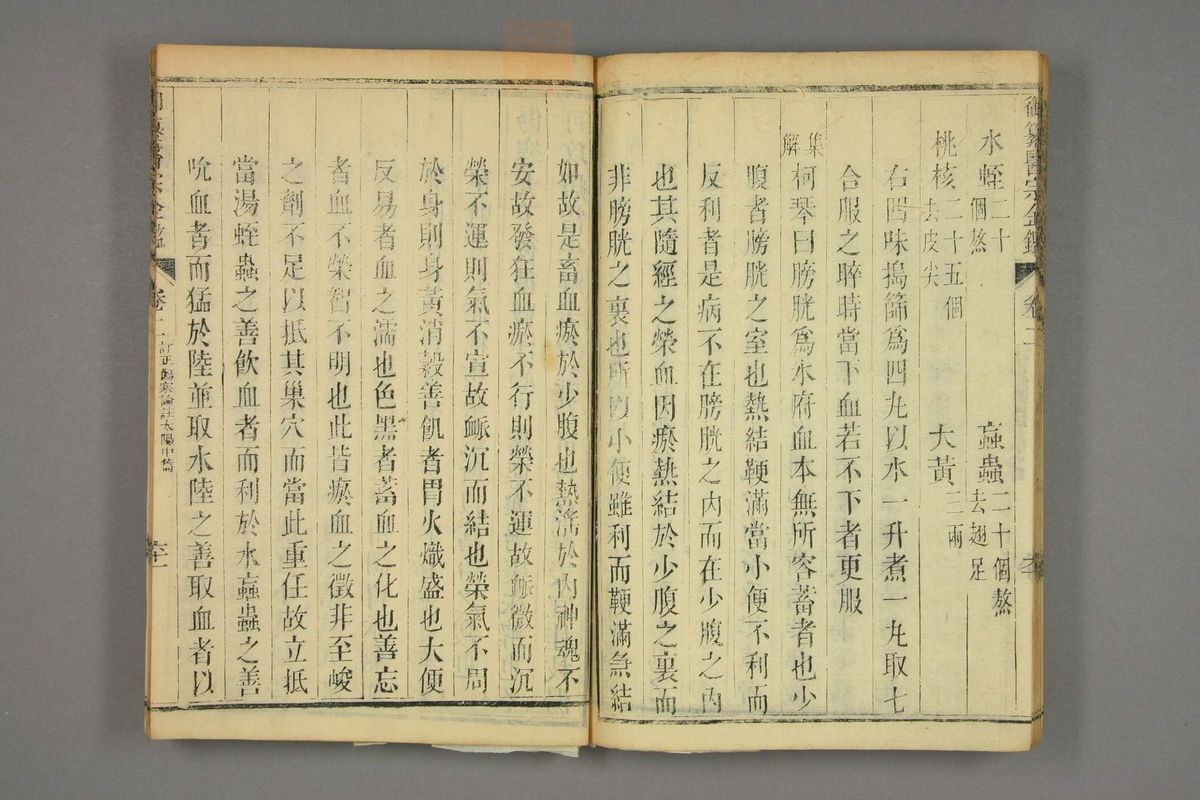 水蛭二十個熬 蝱蟲二十個熬去翅足
桃核二十五個去皮尖 大黃三兩
右四味搗篩爲四丸以水一升煮一丸取七
合服之晬時當下血若不下者更服
集解 柯琴曰膀胱爲水府血本無所容蓄者也少
腹者膀胱之室也熱結鞕滿當小便不利而
反利者是病不在膀胱之內而在少腹之內
也其隨經之榮血因瘀熱結於少腹之裏而
非膀胱之裏也所以小便雖利而鞕滿急結
御纂醫宗金鑑 卷二
如故是畜血瘀於少腹也熱淫於內神魂不
安故發狂血瘀不行則榮不運故脈微而沉
榮不運則氣不宣故脈沉而結也榮氣不周
於身則身黃消穀善飢者胃火熾盛也大便
反易者血之濡也色黑者蓄血之化也善忘
者血不榮智不明也此皆瘀血之徵非至峻
之劑不足以抵其巢穴而當此重任故立抵
當湯蛭蟲之善飲血者而利於水蝱蟲之善
吮血者而猛於陸並取水陸之善取血者以
卷二 訂正傷寒論註太陽中篇